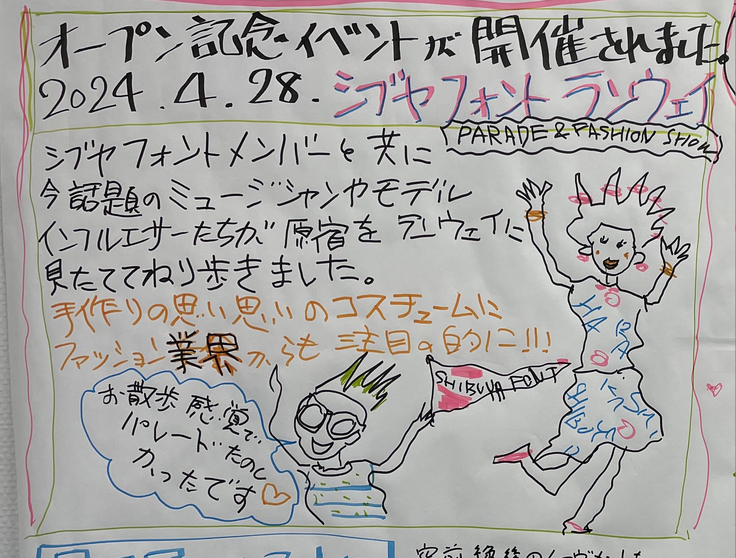 オープン記念イベントが開催されました。
2024.4.28. シブヤフォントランウェイ
PARADE & FASHION SHOW
シブヤフォントメンバーと共に
今話題のミュージシャンやモデル
インフルエサーたちが原宿をランウェイに
見たててねり歩きました。
手作りの思い思いのコスチュームに
ファッション業界からも注目の的に!!!
SHIBUYA FONT
お散歩感覚で
パレードたのし
かったです♡